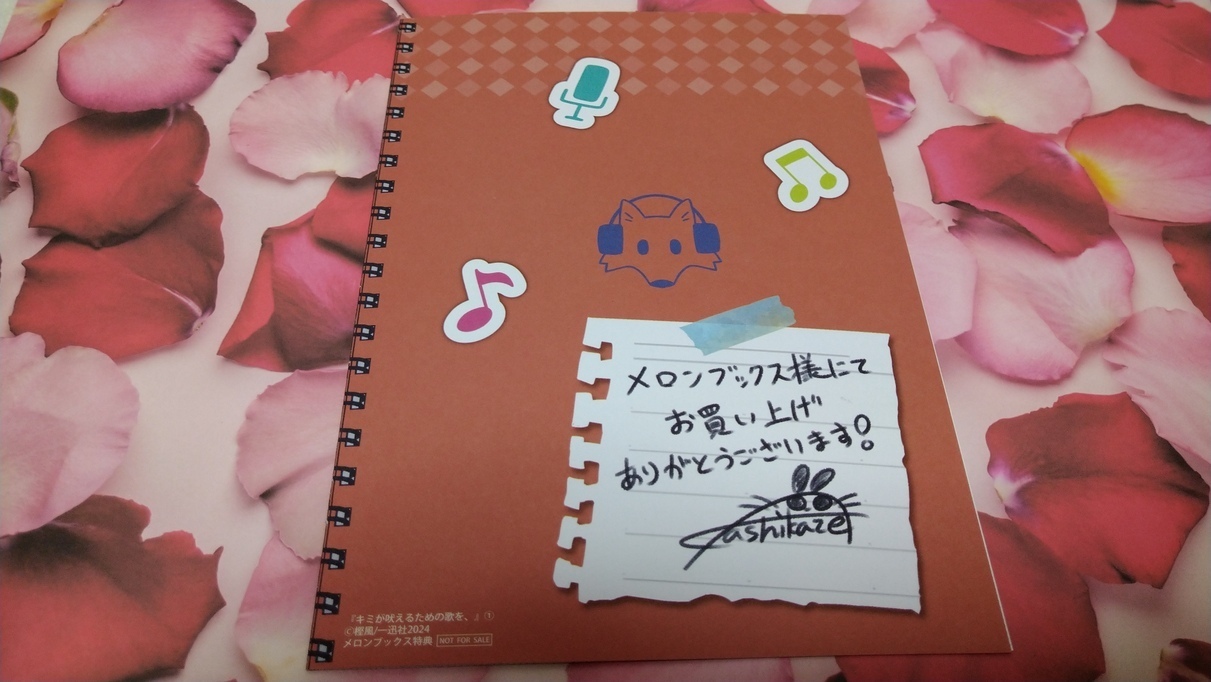 メロンブックス様にて
お買い上げ
ありがとうございます!
Kashikaze
『キミが吠えるための歌を、』①
©樫風/一迅社2024
メロンブックス特典 NOT FOR SALE